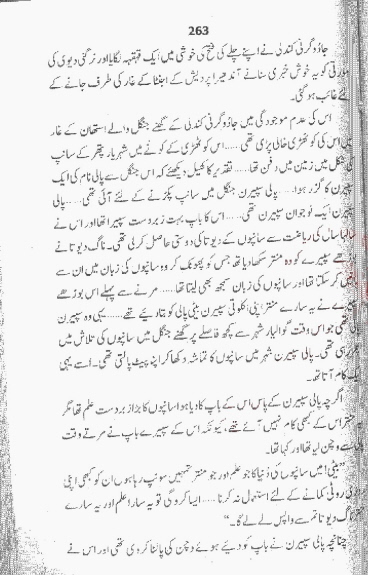 263
جادوگرنی کندلی نے اپنے چلے کی فتح کی خوشی میں ایک قہقہہ لگایا اور نرگنی دیوی کی
مورتی کو یہ خوش خبری سنانے آندھیرا پردیش کے اجنٹا کے غار کی طرف جانے کے
لئے غائب ہو گئی۔
اس کی عدم موجودگی میں جادوگرنی کندلی کے گھنے جنگل والے استھان کے غار
میں اس کی کوٹھڑی خالی پڑی تھی ..... اس کوٹھڑی کے کونے میں شہریار پتھر کے سانپ
کی شکل میں زمین میں دفن تھا ..... تقدیر کا کھیل دیکھئے کہ اس جنگل سے پالی نام کی ایک
سپیرن کا گزر ہوا ..... پالی سپیرن جنگل میں سانپ پکڑنے کے لئے آئی تھی ..... پالی
سپیرن ایک نوجوان سپیرن تھی ..... اس کا باپ بہت زبردست سپیرا تھا اور اس نے
سالہا سال کی ریاضت سے سانپوں کے دیوتا کی دوستی حاصل کر لی تھی۔ ناگ دیوتا نے
بوڑھے سپیرے کو وہ منتر سکھا دیا تھا جس کو پھونک کر وہ سانپوں کی زبان میں ان سے
باتیں کر سکتا تھا اور سانپوں کی زبان سمجھ بھی لیتا تھا ..... مرنے سے پہلے اس بوڑھے
سپیرے نے یہ سارے منتر اپنی اکلوتی سپیرن بیٹی پالی کو بتا دیئے تھے ..... یہی وہ سپیرن
تھی جو اس وقت گوالیار شہر سے کچھ فاصلے پر گھنے جنگل میں سانپوں کی تلاش میں
پھر رہی تھی۔ پالی سپیرن شہر میں سانپوں کا تماشہ دکھا کر اپنا پیٹ پالتی تھی۔ اسے یہی
ایک کام آتا تھا۔
اگرچہ پالی سپیرن کے پاس اس کے باپ کا دیا ہوا سانپوں کا بڑا زبردست علم تھا مگر
یہ منتر اس کے کبھی کام نہیں آئے تھے، کیونکہ اس کے سپیرے باپ نے مرتے وقت
اس سے وچن لیا تھا اور کہا تھا۔
"بیٹی! میں سانپوں کی دُنیا کا جو علم اور جو منتر تمہیں سونپ رہا ہوں ان کو کبھی اپنی
روزی روٹی کمانے کے لئے استعمال نہ کرنا ..... ایسا کرو گی تو یہ سارا علم اور یہ سارے
منتر ناگ دیوتا تم سے واپس لے لے گا۔"
چنانچہ پالی سپیرن نے باپ کو دیئے ہوئے وچن کی پالنا کر دی تھی اور اس نے